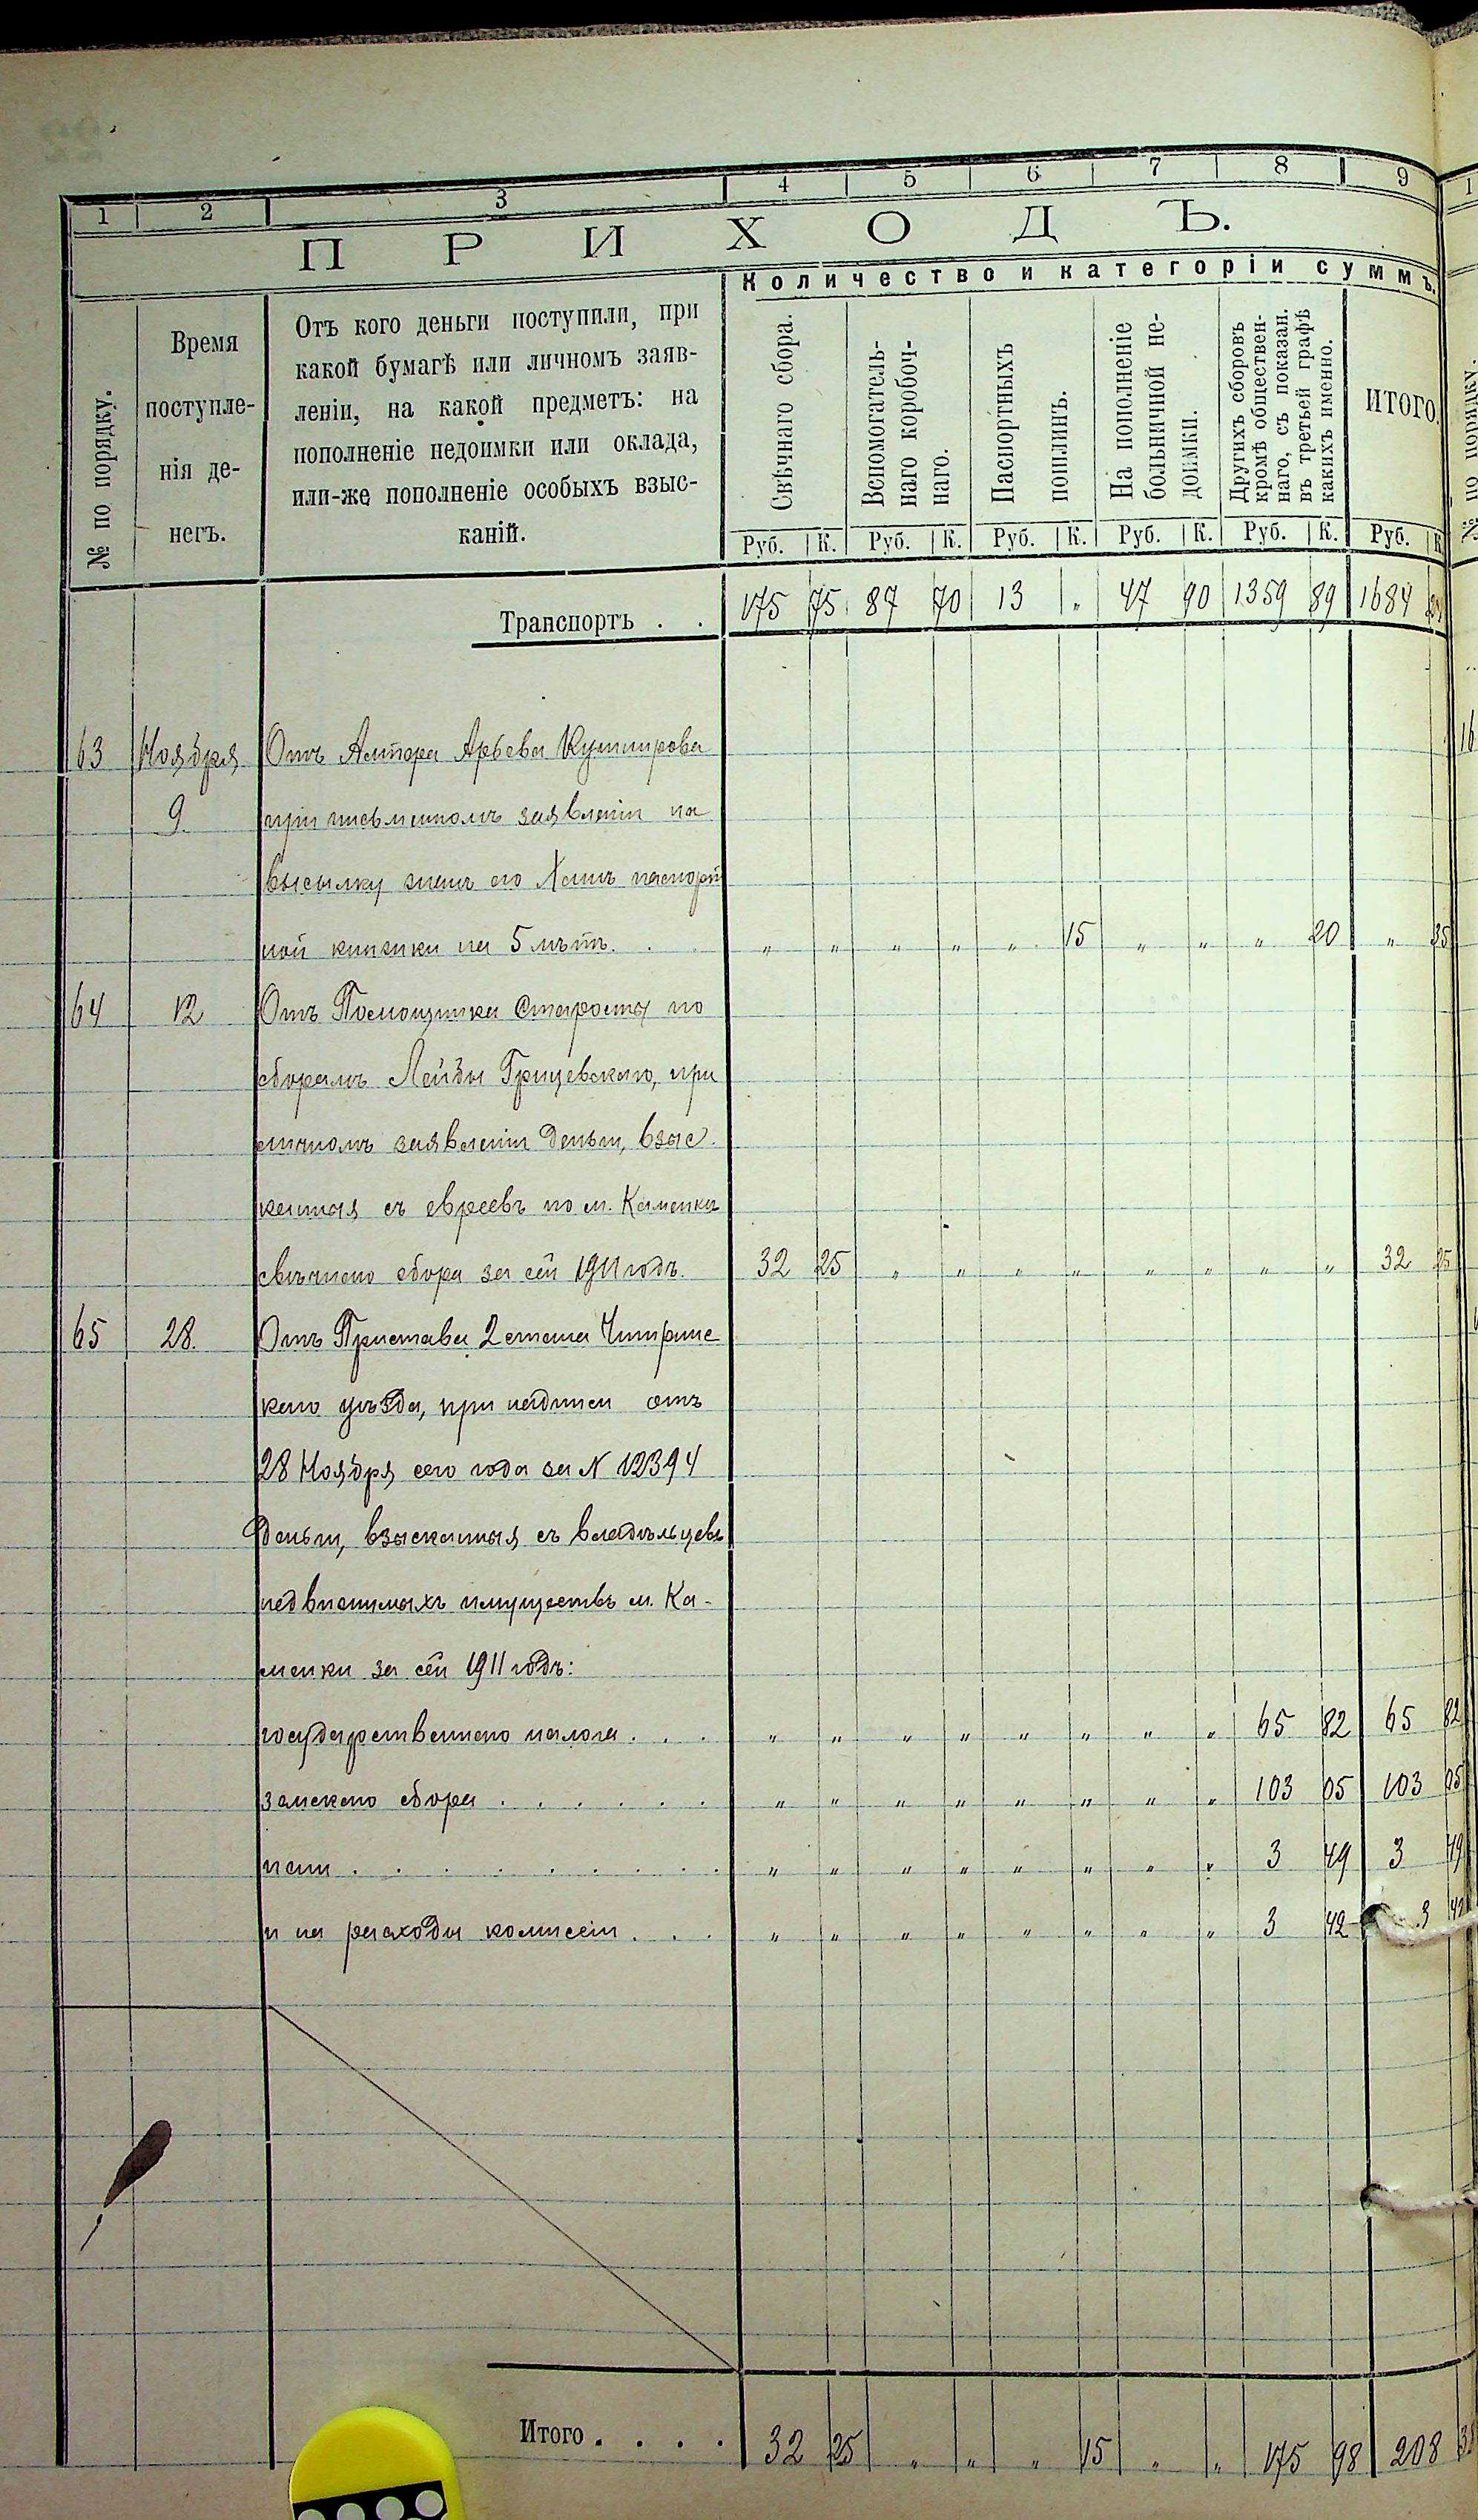 1 2 3 4 5 6 7 8 9
ПРИХОДЪ.
№ по порядку.
Время
поступле-
нія де-
негъ.
Отъ кого деньги поступили, при
какой бумагѣ или личномъ заяв-
леніи, на какой предметъ: на
пополненіе недоимки или оклада,
или-же пополненіе особыхъ взыс-
каній.
Количество и категоріи суммъ.
Свѣчнаго сбора.
Вспомогатель-
наго коробоч-
наго.
Паспортныхъ
пошлинъ.
На пополненіе
больничной не-
доимки.
Другихъ сборовъ
кромѣ обществен-
наго, съ показан.
въ третьей графѣ
какихъ именно.
ИТОГО.
Руб. К. Руб. К. Руб. К. Руб. К. Руб. К. Руб. К
Транспортъ . . 175 75 87 70 13 „ 47 90 1359 89 1684 24
63 Ноября Отъ Алтера Арьева Кушнирова
9. при письменномъ заявленіи на
высылку женѣ его Ханѣ паспорт
ной книжки на 5 лѣтъ. . „ „ „ „ „ 15 „ „ „ 20 „ 35
64 12 Отъ Помощника Старосты по
сборамъ Лейбы Грищевскаго, при
личномъ заявленіи деньги, взыс
канныя съ евреевъ по м. Каменкѣ
свѣчнаго сбора за сей 1911 годъ. 32 25 „ „ „ „ „ „ „ „ 32 25
65 28. Отъ Пристава 2 стана Чигринс
каго уѣзда, при надписи отъ
28 Ноября сего года за N 12394
деньги, взысканныя съ владѣльцевъ
недвижимыхъ имуществъ м. Ка-
менки за сей 1911 годъ:
государственнаго налога . . . „ „ „ „ „ „ „ „ 65 82 65 82
земскаго сбора . . . . . . „ „ „ „ „ „ „ „ 103 05 103 05
пени . . . . . . . . „ „ „ „ „ „ „ „ 3 49 3 49
и на расходы комисеіи . . . „ „ „ „ „ „ „ „ 3 42 3 42
Итого . . . . 32 25 „ „ „ 15 „ „ 175 98 208 38